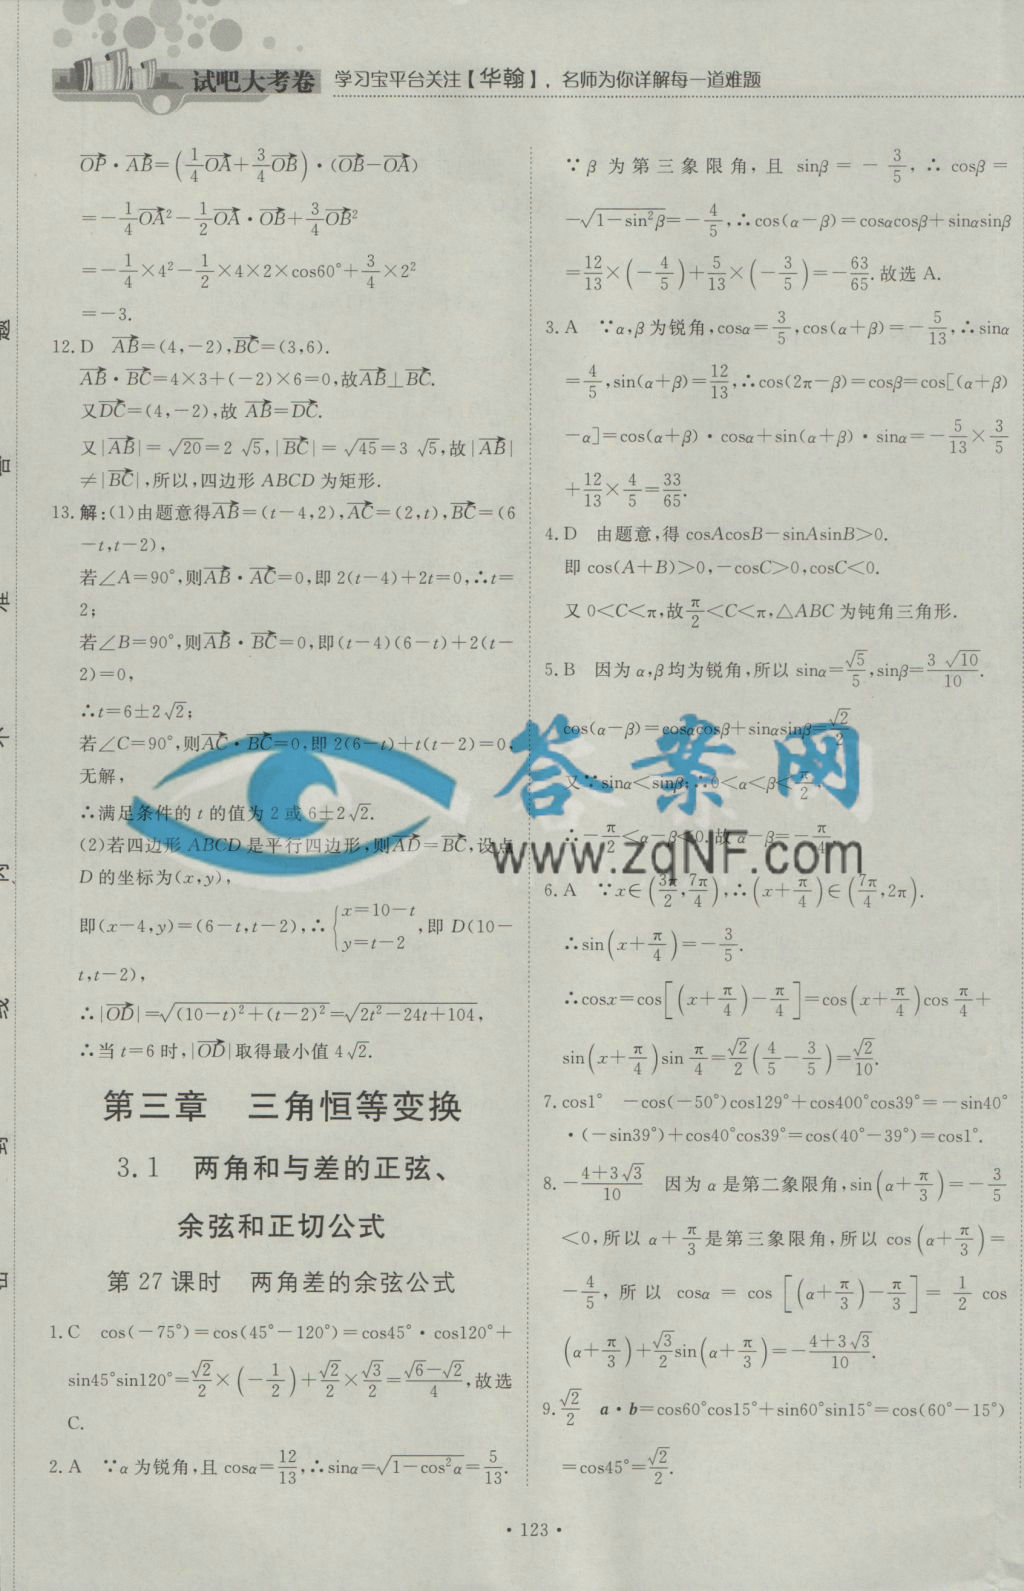 试吧大考卷 学习宝平台关注【华翰】，名师为你详解每一道难题
$\overrightarrow{OP}·\overrightarrow{AB}=(\frac{1}{4}\overrightarrow{OA}+\frac{3}{4}\overrightarrow{OB})·(\overrightarrow{OB}-\overrightarrow{OA})$
$=-\frac{1}{4}\overrightarrow{OA}^2-\frac{1}{2}\overrightarrow{OA}·\overrightarrow{OB}+\frac{3}{4}\overrightarrow{OB}^2$
$=-\frac{1}{4}×4^2-\frac{1}{2}×4×2×cos60°+\frac{3}{4}×2^2$
=-3.
12. D $\overrightarrow{AB}$=(4,-2),$\overrightarrow{BC}$=(3,6).
$\overrightarrow{AB}·\overrightarrow{BC}$=4×3+(-2)×6=0,故$\overrightarrow{AB}⊥\overrightarrow{BC}$.
又$\overrightarrow{DC}$=(4,-2),故 $\overrightarrow{AB}=\overrightarrow{DC}$.
又|$\overrightarrow{AB}$|=$\sqrt{20}$=2$\sqrt{5}$,|$\overrightarrow{BC}$|=$\sqrt{45}$=3$\sqrt{5}$,故|$\overrightarrow{AB}$|
≠|$\overrightarrow{BC}$|,所以,四边形 ABCD 为矩形.
13. 解:(1)由题意得$\overrightarrow{AB}$=(t-4,2),$\overrightarrow{AC}$=(2,t),$\overrightarrow{BC}$=(6
-t,t-2),
若∠A=90°,则$\overrightarrow{AB}·\overrightarrow{AC}$=0,即 2(t-4)+2t=0,∴t=
2;
若∠B=90°,则$\overrightarrow{AB}·\overrightarrow{BC}$=0,即(t-4)(6-t)+2(t-
2)=0,
∴t=6±2$\sqrt{2}$;
若∠C=90°,则$\overrightarrow{AC}·\overrightarrow{BC}$=0,即 2(6-t)+t(t-2)=0,
无解,
∴满足条件的 t 的值为 2 或 6±2$\sqrt{2}$.
(2)若四边形 ABCD 是平行四边形,则$\overrightarrow{AD}=\overrightarrow{BC}$,设点
D 的坐标为(x,y),
即(x-4,y)=(6-t,t-2),∴$\begin{cases}x=10-t\\y=t-2\end{cases}$,即 D(10-
t,t-2),
∴|$\overrightarrow{OD}$|=$\sqrt{(10-t)^2+(t-2)^2}$=$\sqrt{2t^2-24t+104}$,
∴当 t=6 时,|$\overrightarrow{OD}$|取得最小值 4$\sqrt{2}$.
第三章 三角恒等变换
3.1 两角和与差的正弦、
余弦和正切公式
第 27 课时 两角差的余弦公式
1. C cos(-75°)=cos(45°-120°)=cos45°·cos120°+
sin45°sin120°=$\frac{\sqrt{2}}{2}×(-\frac{1}{2})+\frac{\sqrt{2}}{2}×\frac{\sqrt{3}}{2}=\frac{\sqrt{6}-\sqrt{2}}{4}$,故选
C.
2. A ∵α 为锐角,且 cosα=$\frac{12}{13}$,∴sinα=$\sqrt{1-cos^2α}=\frac{5}{13}$.
∵β 为第三象限角,且 sinβ=-$\frac{3}{5}$,∴cosβ=
$-\sqrt{1-sin^2β}=-\frac{4}{5}$,∴cos(α-β)=cosαcosβ+sinαsinβ
$=\frac{12}{13}×(-\frac{4}{5})+\frac{5}{13}×(-\frac{3}{5})=-\frac{63}{65}$.故选 A.
3. A ∵α,β 为锐角,cosα=$\frac{3}{5}$,cos(α+β)=-$\frac{5}{13}$,∴sinα
=$\frac{4}{5}$,sin(α+β)=$\frac{12}{13}$,∴cos(2π-β)=cosβ=cos[(α+β)
-α]=cos(α+β)·cosα+sin(α+β)·sinα=-$\frac{5}{13}×\frac{3}{5}$
$+\frac{12}{13}×\frac{4}{5}=\frac{33}{65}$.
4. D 由题意,得 cosAcosB-sinAsinB>0.
即 cos(A+B)>0,-cosC>0,cosC<0.
又 0<C<π,故$\frac{π}{2}$<C<π,△ABC 为钝角三角形.
5. B 因为 α,β均为锐角,所以 sinα=$\frac{\sqrt{5}}{5}$,sinβ=$\frac{3\sqrt{10}}{10}$.
cos(α-β)=cosαcosβ+sinαsinβ=$\frac{\sqrt{2}}{2}$
又∵sinα<sinβ,∴0<α<β<$\frac{π}{2}$,
∴-$\frac{π}{2}$<α-β<0.故 α-β=-$\frac{π}{4}$.
6. A ∵x∈($\frac{3π}{2},\frac{7π}{4}$),∴(x+$\frac{π}{4}$)∈($\frac{7π}{4}$,2π).
∴sin(x+$\frac{π}{4}$)=-$\frac{3}{5}$.
∴cosx=cos[(x+$\frac{π}{4}$)-$\frac{π}{4}$]=cos(x+$\frac{π}{4}$)cos$\frac{π}{4}$+
sin(x+$\frac{π}{4}$)sin$\frac{π}{4}$=$\frac{\sqrt{2}}{2}(\frac{4}{5}-\frac{3}{5})=\frac{\sqrt{2}}{10}$.
7. cos1° -cos(-50°)cos129°+cos400°cos39°=-sin40°
·(-sin39°)+cos40°cos39°=cos(40°-39°)=cos1°.
8. -$\frac{4+3\sqrt{3}}{10}$ 因为 α 是第二象限角,sin(α+$\frac{π}{3}$)=-$\frac{3}{5}$
<0,所以 α+$\frac{π}{3}$是第三象限角,所以 cos(α+$\frac{π}{3}$)=
-$\frac{4}{5}$,所以 cosα=cos[(α+$\frac{π}{3}$)-$\frac{π}{3}$]=$\frac{1}{2}$cos
(α+$\frac{π}{3}$)+$\frac{\sqrt{3}}{2}$sin(α+$\frac{π}{3}$)=-$\frac{4+3\sqrt{3}}{10}$.
9. $\frac{\sqrt{2}}{2}$ a·b=cos60°cos15°+sin60°sin15°=cos(60°-15°)
=cos45°=$\frac{\sqrt{2}}{2}$.
答案网
www.zqNF.com
·123·